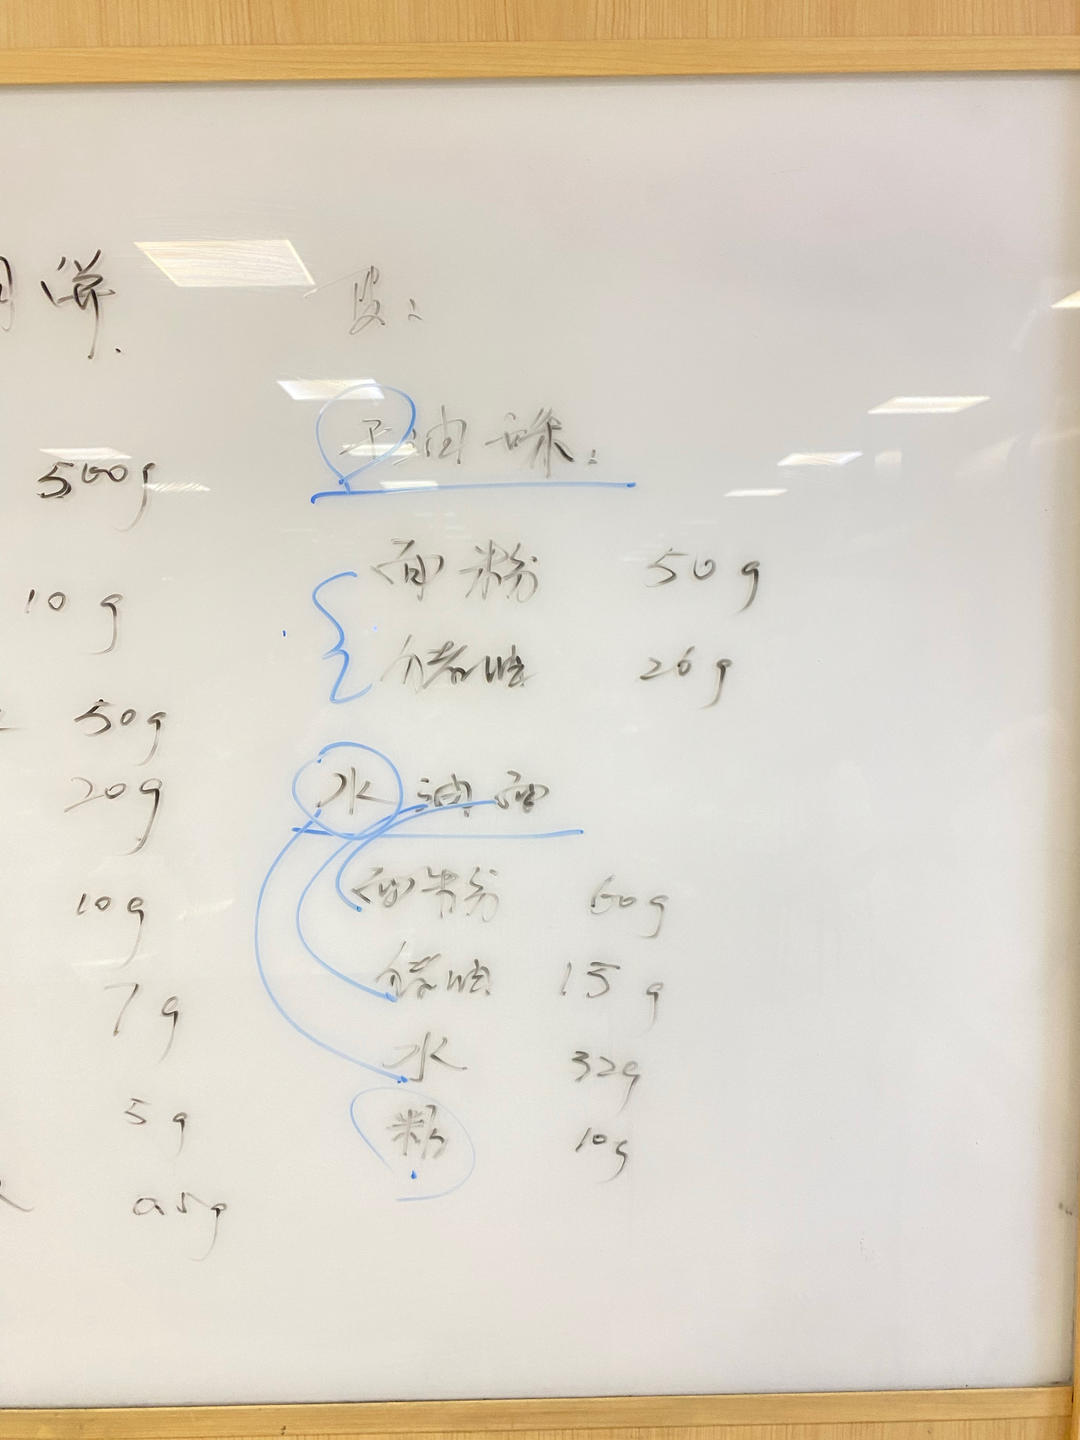 月饼.
500g
10g
50g
20g
10g
7g
5g
0.5g
皮:
干油酥:
面粉 50g
猪油 26g
水油面
面粉 60g
猪油 15g
水 32g
糖 10g